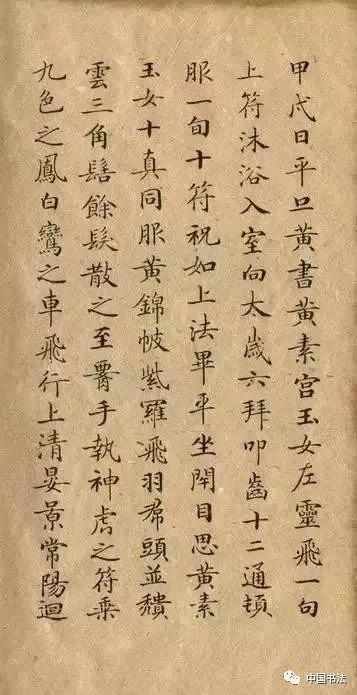 甲戌日平旦黃書黃素宮玉女左靈飛一旬
上符沐浴入室向太歲六拜叩齒十二通頓
服一旬十符祝如上法畢平坐閉目思黃素
玉女十真同服黃錦帔紫羅飛羽帬頭並穨
雲三角髻餘髮散之至腰手執神虎之符乗
九色之鳳白鸞之車飛行上清晏景常陽迴
中国书法